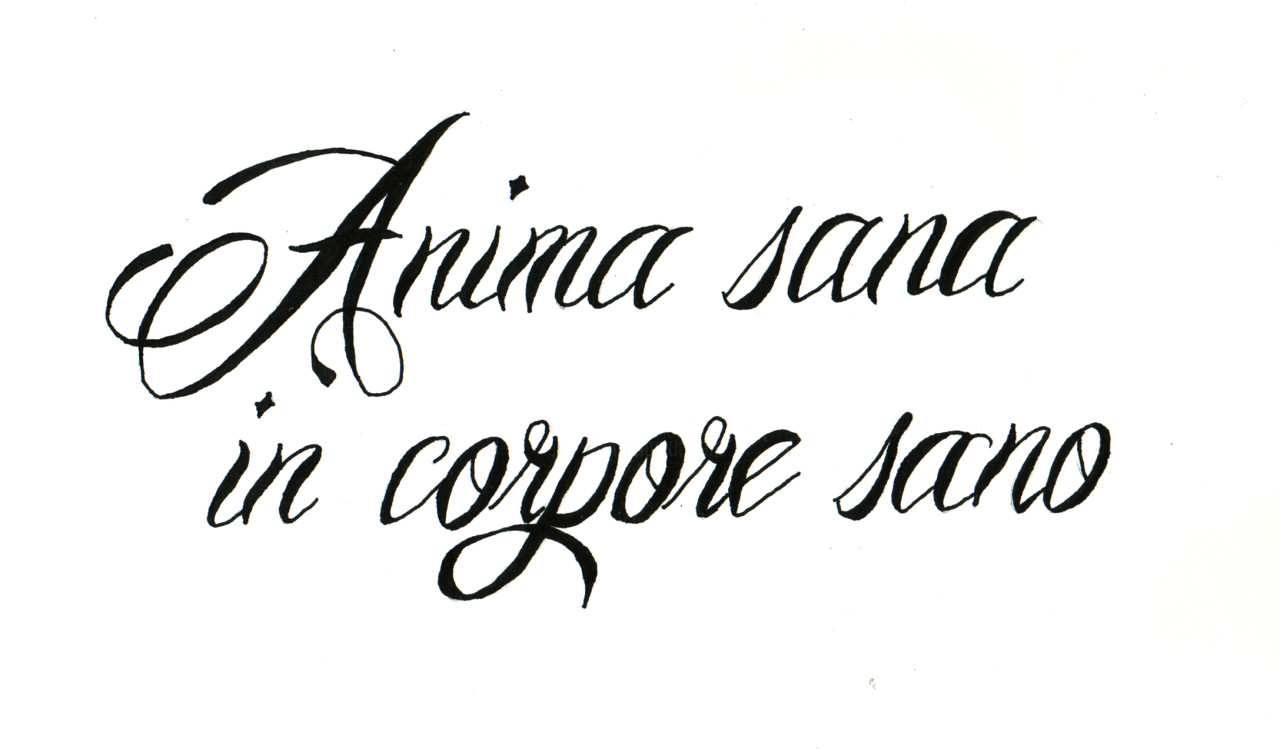 Anima sana
in corpore sano